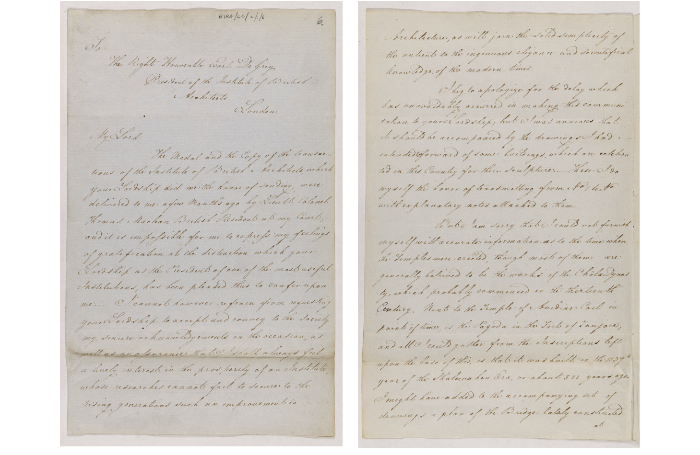 6.
To
The Right Honorable Lord De Grey
President of the Institute of British
Architects
London
My Lord
The Medal and the Copy of the transac-
tions of the Institute of British Architects which
your Lordship did me the honor of sending, were
delivered to me a few Months ago by Lieut. Colonel
Thomas Maclean British Resident at my Court,
and it is impossible for me to express my feelings
of gratification at the distinction which your
Lordship as the President of one of the most useful
Institutions, has been pleased thus to confer upon
me. I cannot however refrain from requesting
your Lordship to accept and convey to the Society
my sincere acknowledgements on the occasion, as
well as an assurance that I shall always feel
a lively interest in the prosperity of an Institute
whose researches cannot fail to secure to the
rising generations such an improvement in
Architecture, as will join the solid simplicity of
the ancients to the ingenious elegance and scientifical
knowledge of the modern times.
I beg to apologize for the delay which
has unavoidably occurred in making this commu-
cation to your Lordship, but I was anxious that
it should be accompanied by the drawings I had
of some buildings, which are celebra-
ted in this Country for their Sculpture. These I do
myself the honor of transmitting from No. to No
with explanatory notes attached to them.
But I am sorry that I could not furnish
myself with accurate information as to the time when
the Temples were erected, though most of them are
generally believed to be the works of the Cholas Dynas
ty, which probably commenced in the thirteenth
Century. Next to the Temple of in
point of time is the Pagoda in the Fort of Tanjore,
and all I could gather from the inscriptions left
upon the base of this, is that it was built in the
year of the Era, or about years ago.
I might have added to the accompanying set of
drawings a plan of the Bridge lately constructed
at